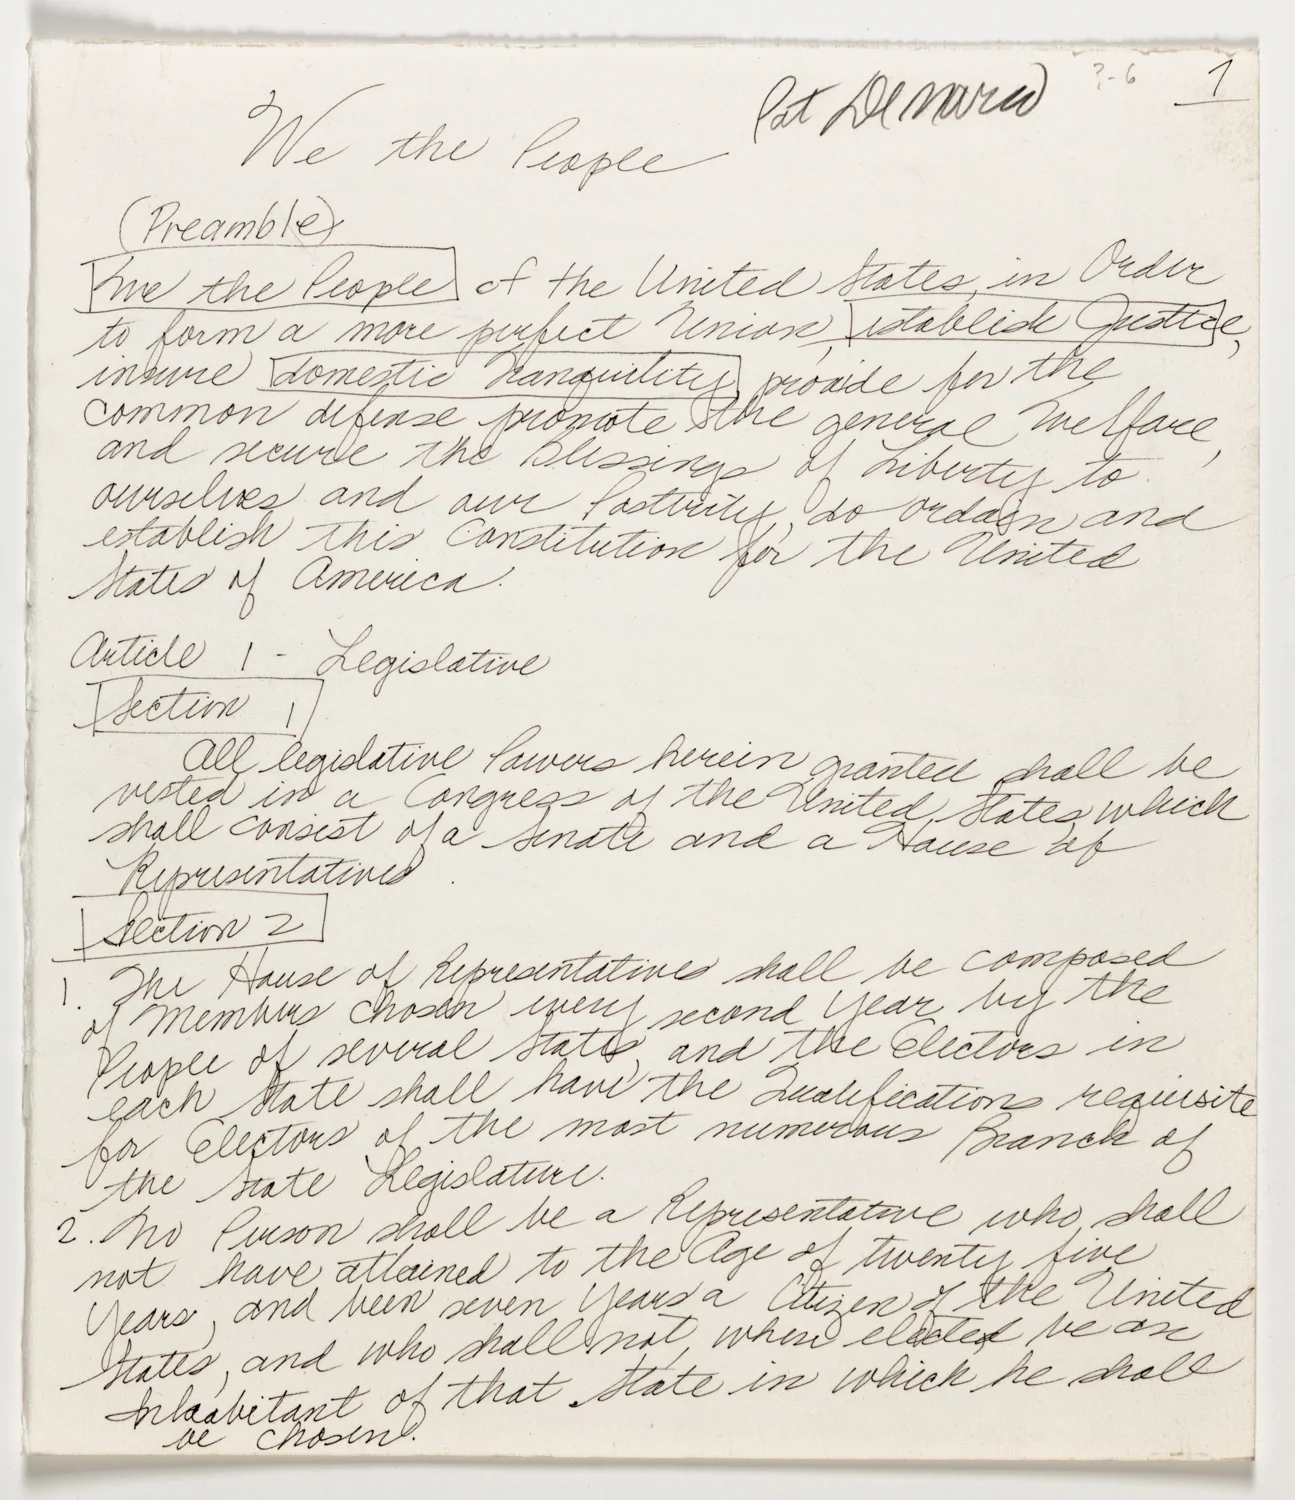 ?-6
1
Pat DeMarco
We the People
(Preamble)
We the People of the United States, in Order
to form a more perfect Union, establish Justice,
insure domestic Tranquility, provide for the
common defense promote the general Welfare,
and secure the Blessings of Liberty to
ourselves and our Posterity, do ordain and
establish this Constitution for the United
States of America.
Article 1 - Legislative
Section 1
All legislative Powers herein granted shall be
vested in a Congress of the United States, which
shall consist of a Senate and a House of
Representatives.
Section 2
1. The House of Representatives shall be composed
of Members chosen every second Year by the
People of several States, and the Electors in
each State shall have the Qualifications requisite
for Electors of the most numerous Branch of
the State Legislature.
2. No Person shall be a Representative who shall
not have attained to the Age of twenty five
Years, and been seven Years a Citizen of the United
States, and who shall not, when elected be an
Inhabitant of that State in which he shall
be chosen.